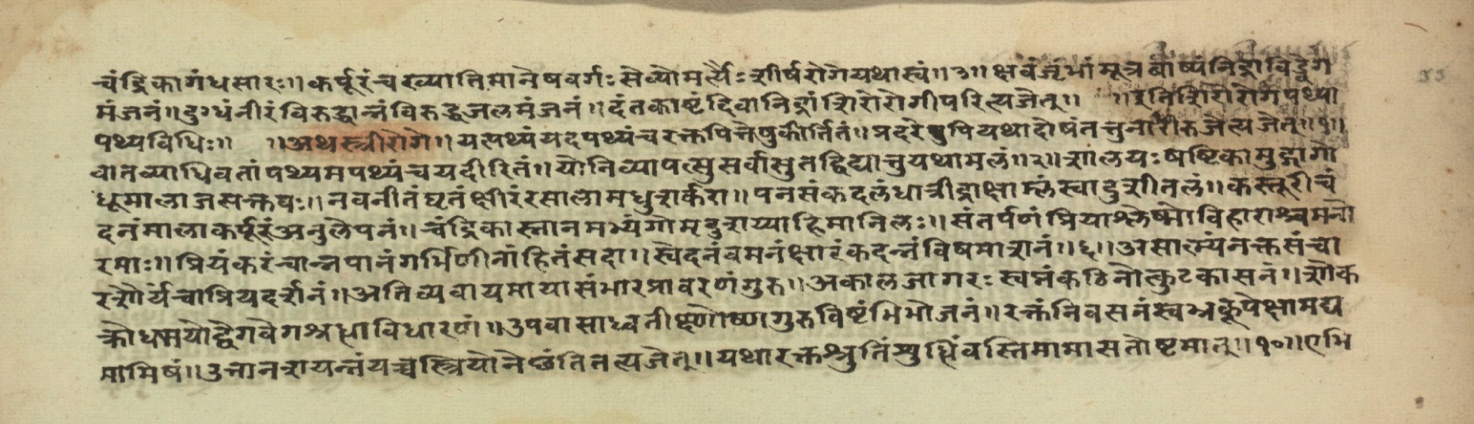 चंद्रिकागंधसारः॥ कर्पूरंचख्यातिमानेषवर्गः सेव्योमर्त्यैः शीर्षरोगेयथास्वं॥३॥ क्षवंजृंभांमूत्रबाष्पंनिद्राविड्वेग
मंजनं॥ दुग्धंनीरंविरुद्धान्नंविरुद्धजलमंजनं॥ दंतकाष्टंदिवानिद्रांशिरोरोगीपरित्यजेत्॥ ॥इतिशिरोरोगपथ्या
पथ्यविधिः॥ ॥अथस्त्रीरोगे॥ यत्पथ्यंयदपथ्यंचरक्तपित्तेषुकीर्त्तितं॥ प्रदरेषुपियथादोषंतत्तुनारीरुजेत्यजेत्॥१॥
वातव्याधिवतांपथ्यमपथ्यंचयदीरितं॥ योनिव्यापत्सुसर्वासुतद्विद्यात्तुयथामलं॥२॥ शालयः षष्टिकामुद्गागो
धूमालाजसक्तवः॥ नवनीतंघृतंक्षीरंरसालामधुशर्करा॥ पनसंकदलंधात्रीद्राक्षाम्लंस्वादुशीतलं॥ कस्तूरीचं
दनंमालाकर्पूरंअनुलेपनं॥ चंद्रिकास्नानमभ्यंगोमृदुशय्याहिमानिलः॥ संतर्पणंप्रियाश्लेष्मोविहाराश्चमनो
रमाः॥ प्रियंकरंचान्नपानंगर्भिणीनांहितंसदा॥ स्वेदनंवमनंक्षारंकदन्नंविषमाशनं॥६॥ असात्म्यंनक्तसंचा
रशौर्यंचाप्रियदर्शनं॥ अतिव्यवायमायासंभारप्रावरणंगुरु॥ अकालजागरः स्वप्नंकठिनोत्कुटकासनं॥ शोक
क्रोधभयोद्वेगवेगश्रधाविधारणं॥ उपवासाध्वतीक्ष्णोष्णगुरुविष्टंभिभोजनं॥ रक्तंनिवसनंस्वभ्रकूपेक्षामद्य
मामिषं॥ उत्तानशयन्नंयच्चस्त्रियोनेछंतितत्त्यजेत्॥ यथारक्तश्रुतिंशुद्धिंवस्तिमामासतोष्टमात्॥१०॥ एभि